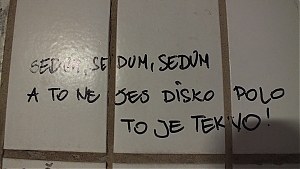 SEDUM, SEDUM, SEDUM
A TO NE JES DISKO POLO
TO JE TEKNO!